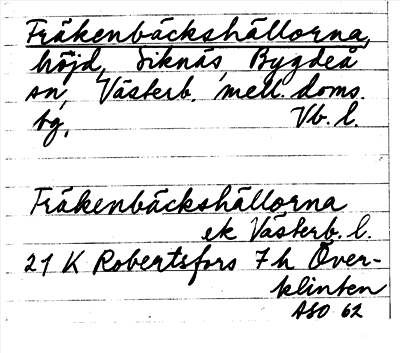 Fräkenbäckshällorna,
höjd, Siknäs, Bygdeå
sn, Västerb. mell. doms.
bg, Vb. l.
Fräkenbäckshällorna
ek Västerb. l.
21 K Robertsfors 7 h Över-
klinten
ASO 62